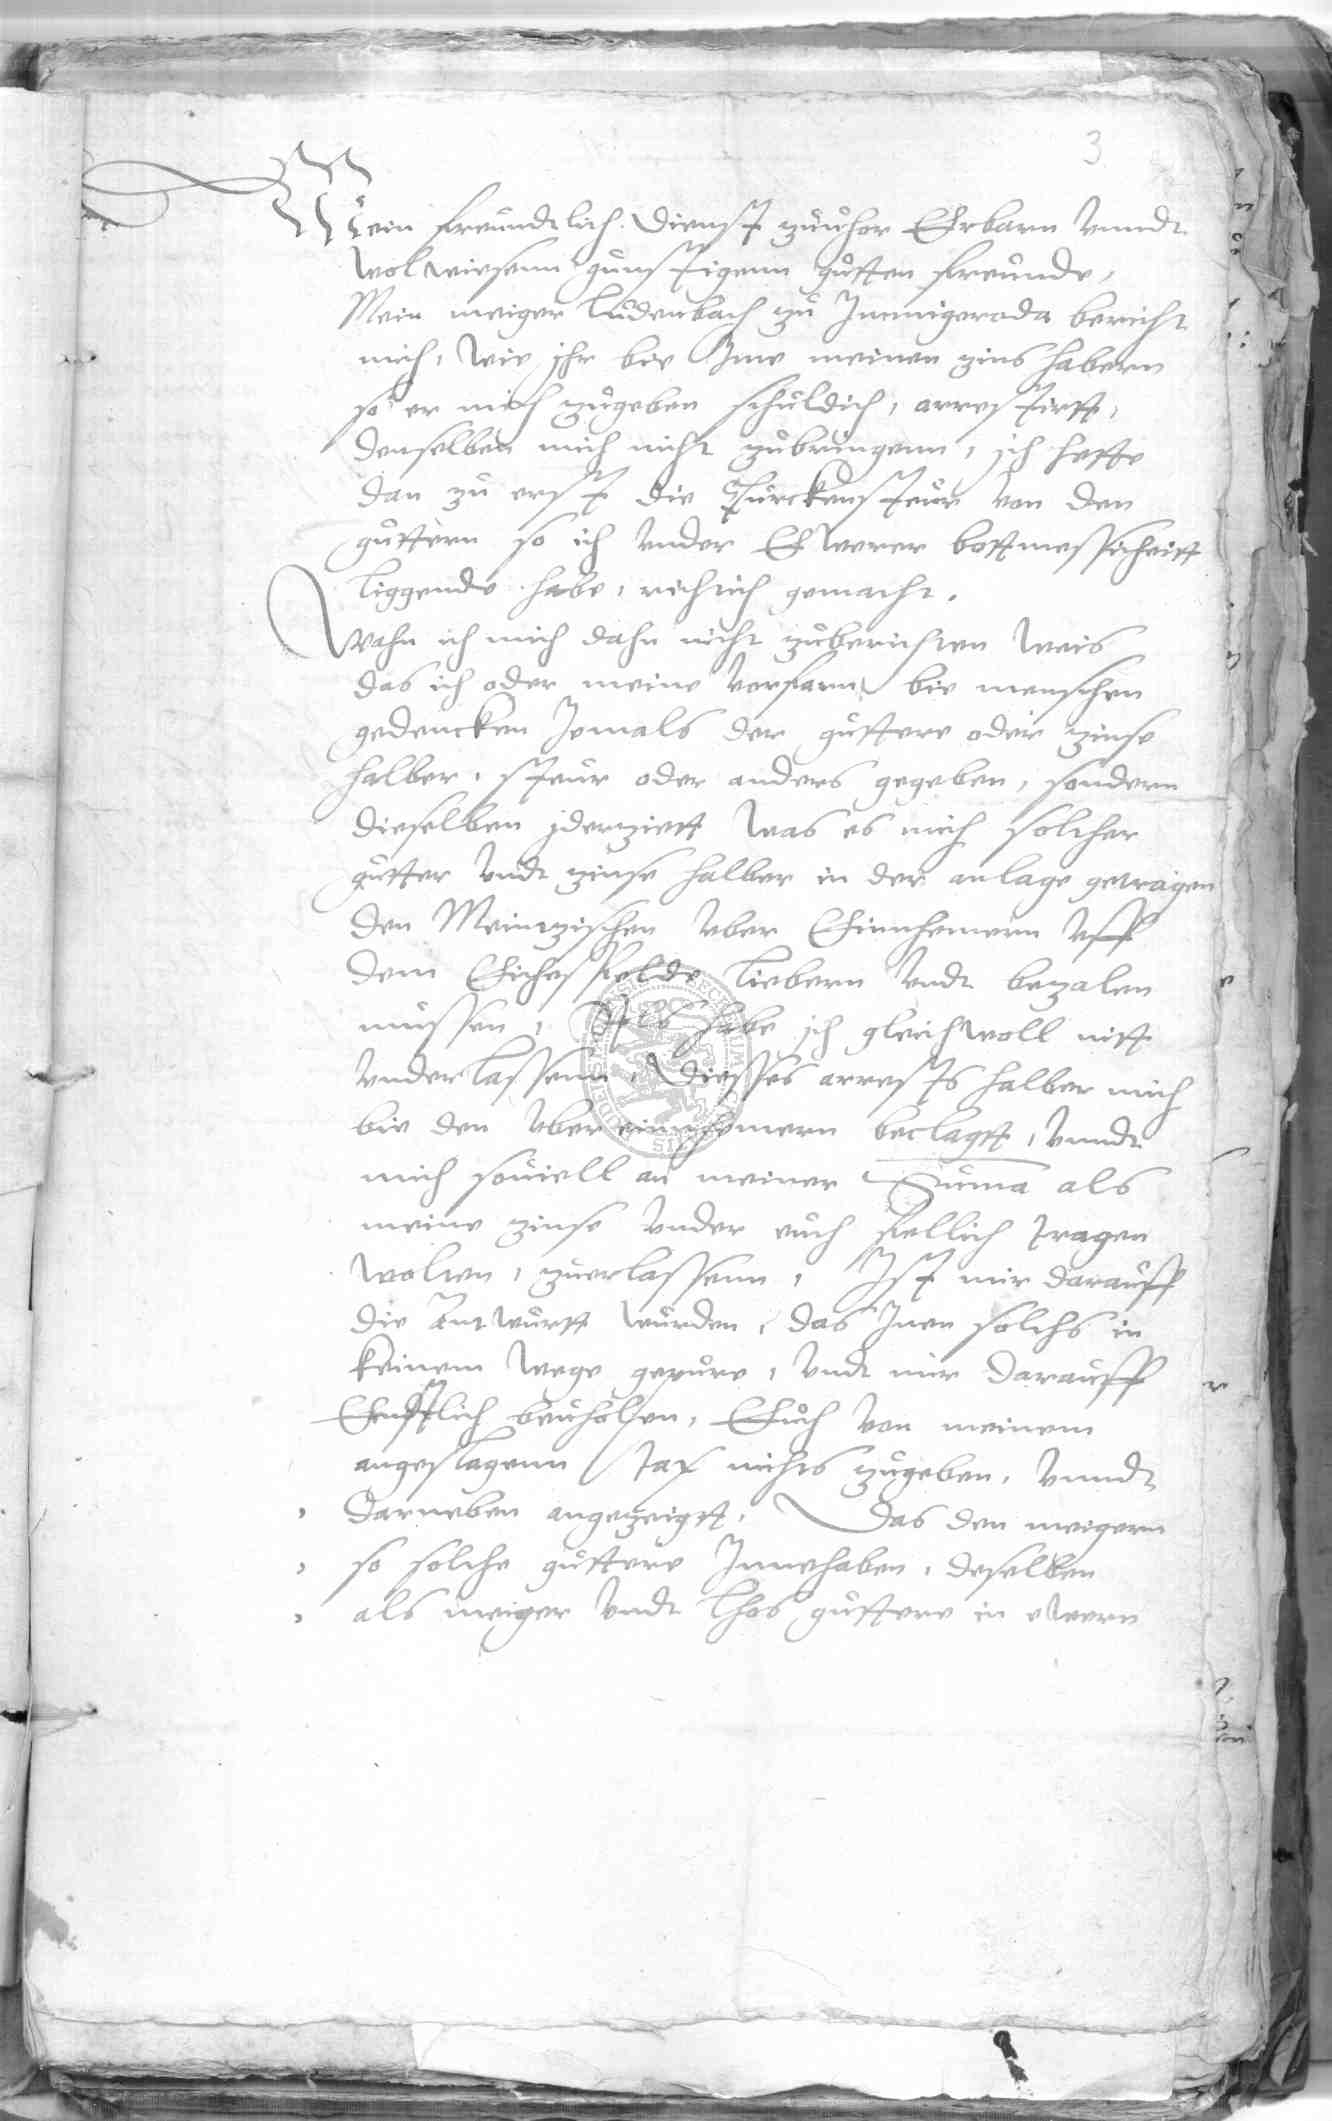 3
Mein freundtlich dienst zuuhor Erbarn vnndt
wolwiesenn gunstigenn gutten freunde,
Mein meiger Ludenbach zu Immigeroda bericht
mich, wie ihr bie Ime meinen zins habern
so er mich zugeben schuldich, arrestirtt,
denselben mich nicht zubringenn, ich hette
dan zu erst die Turckensteur von den
guttern so ich vnder Ewerer bottmessicheitt
liggende habe, richtich gemacht.
Wahn ich mich dahn nicht zuberichten weis
das ich oder meine vorfarn bie menschen
gedencken Jemals der guttere oder zinse
halber, steur oder anders gegeben, sondern
dieselben jderzieitt was es mich solcher
gutter vndt zinse halber in der anlage getragen
den Meintzischen vber Einnhemern vff
dem Eichesfelde liebern vndt bezalen
mussen, Als habe ich gleichwoll nitt
vnderlassenn, diesses arrests halber mich
bie den vber einnhemern beclagtt, vnndt
mich souiell an meiner Summa als
meine zinse vnder euch fellich tragen
wolten, zuerlassenn, Ist mir darauff
die Antwurtt wurden, das Inen solchs in
keinem wege gepure, vndt mir darauff
Ernstlich beuholhen, Euch von meinem
angeslagenn tax nichts zugeben, vnndt
darneben angezeigtt, Das den meigern
so solche guttere Innehaben, deselben
als meiger vndt guttere in ewern